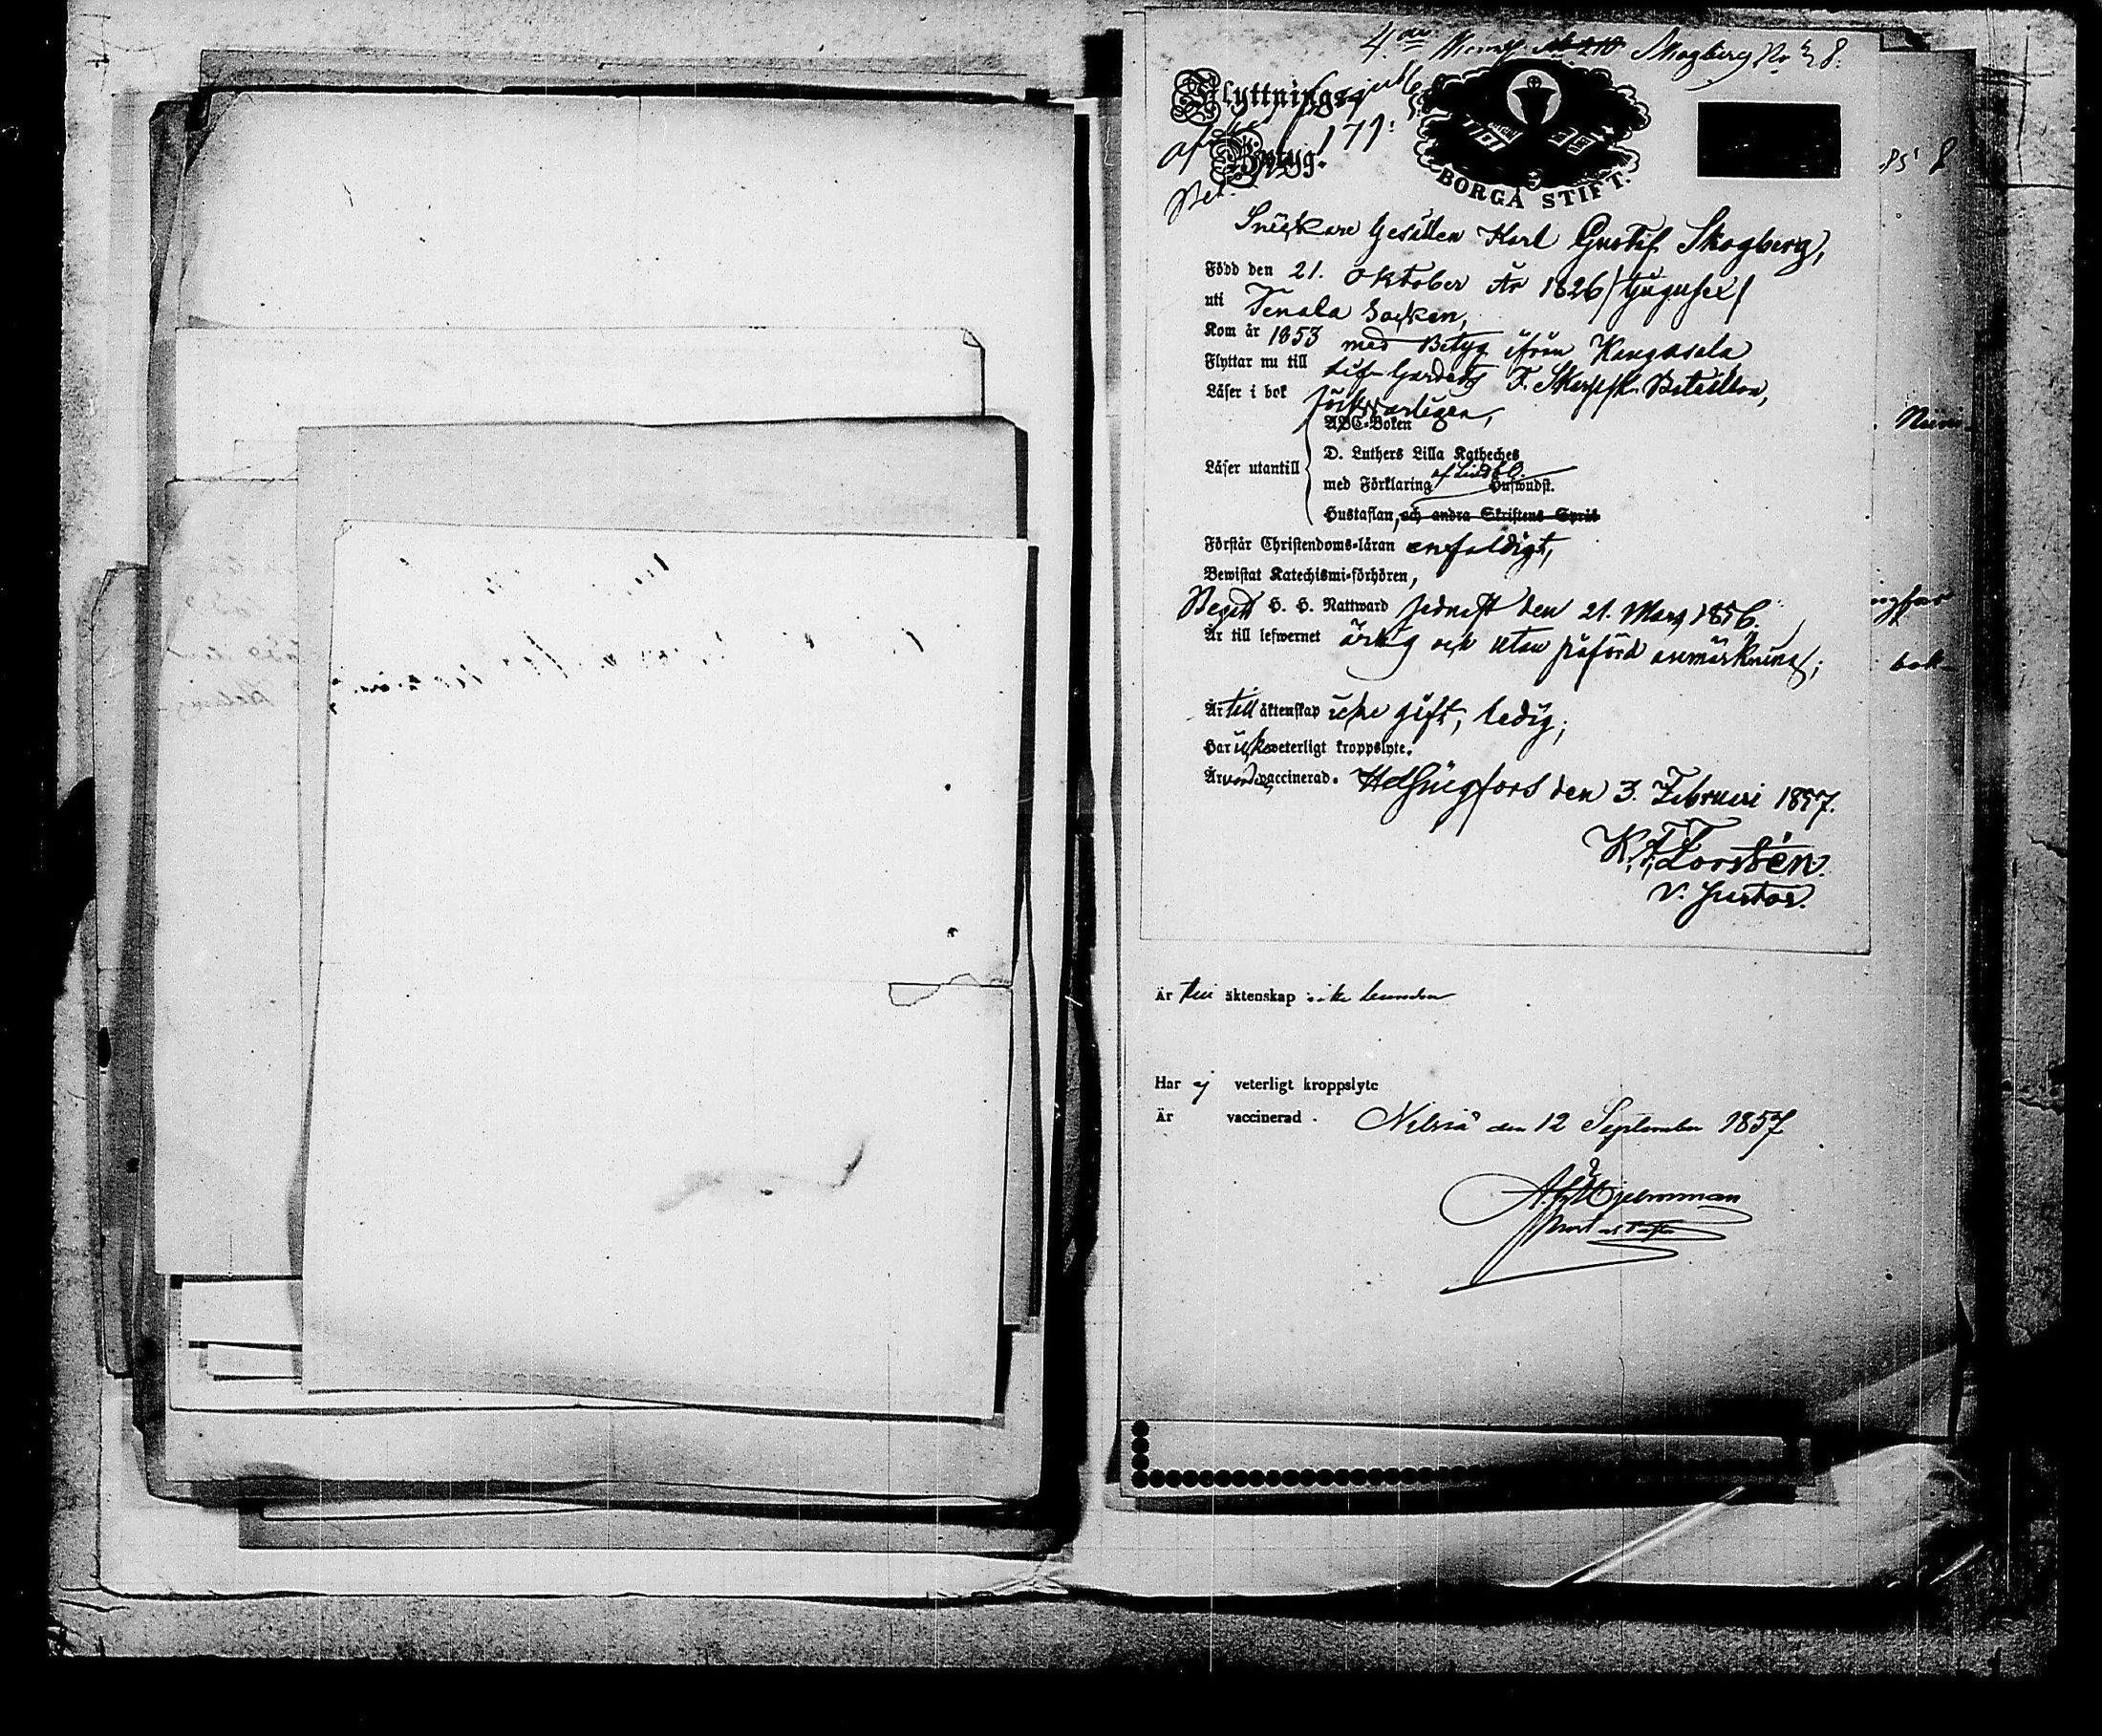 4
Skogberg No 28.
Flyttnings-
Betyg.
171
BORGÅ STIFT.
Snickare Gesällen Karl Gustaf Skogberg,
Född den 21. Oktober År 1826 /tjugusex/
uti Tenala Socken,
Kom år 1853 med Betyg ifrån Kangasala
Flyttar nu till Lif-Gardets F. Skarpsk. Bataillon,
Läser i bok försvarligen,
ABC-Boken
D. Luthers Lilla Katheches
Läser utantill
med Förklaring af Lindbl. Huswudst.
Hustaflan, och andra Skriftens Språk
Förstår Christendoms-läran enfaldigt,
Bewistat Katechismi-förhören,
Begått H. H. Nattward sednast den 21. Mars 1856.
Är till lefwernet ärlig och utan påförd anmärkning;
Är till äktenskap icke gift, ledig;
Har icke weterligt kroppslyte.
Är vaccinerad. Helsingfors den 3. Februari 1857.
K. F. Forstén.
V. Pastor.
bok-
Är till äktenskap icke bunden
Har ej veterligt kroppslyte
Är vaccinerad. Nilsiä den 12 September 1857